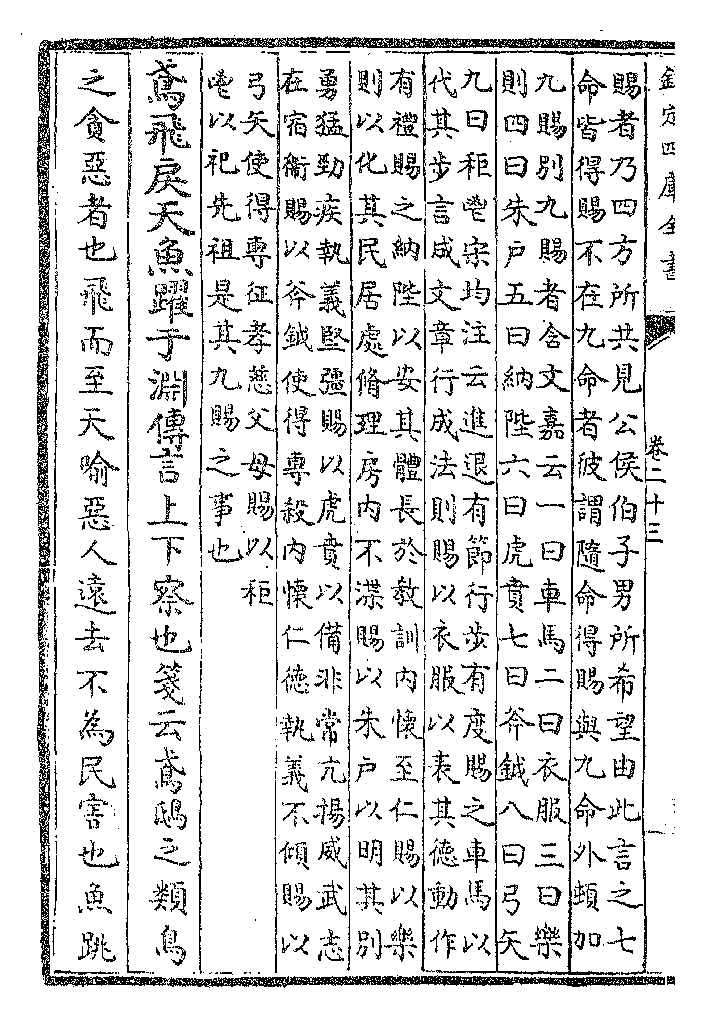 欽定四庫全書
卷二十三
賜者乃四方所共見公侯伯子男所希望由此言之七
命皆得賜不在九命者彼謂隨命得賜與九命外頓加
九賜別九賜者含文嘉云一曰車馬二曰衣服三曰樂
則四曰朱戶五曰納陛六曰虎賁七曰斧鉞八曰弓矢
九曰秬鬯宋均注云進退有節行步有度賜之車馬以
代其步言成文章行成法則賜以衣服以表其德動作
有禮賜之納陛以安其體長於教訓內懷至仁賜以樂
則以化其民居處脩理房內不渫賜以朱戶以明其別
勇猛勁疾執義堅彊賜以虎賁以備非常亢揚威武志
在宿衛賜以斧鉞使得專殺內懷仁德執義不傾賜以
弓矢使得專征孝慈父母賜以秬
鬯以祀先祖是其九賜之事也
鳶飛戾天魚躍于淵傳言上下察也箋云鳶鴟之類鳥
之貪惡者也飛而至天喻惡人遠去不為民害也魚跳